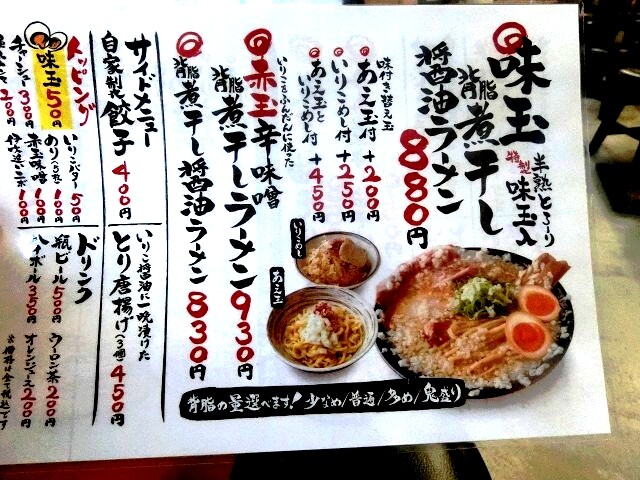 味玉煮干し
背脂
醤油ラーメン
880円
半熟とろーり
特製味玉入
味付き替え玉
あえ玉付+200円
いりこめし付+250円
あえ玉と
いりこめし付+450円
いりこをふんだんに使った
赤玉辛味噌
背脂煮干しラーメン930円
背脂煮干し醤油ラーメン830円
いりこめし
あえ玉
背脂の量選べます!少なめ/普通/多め/鬼盛り
サイドメニュー
自家製餃子400円
いりこ醤油に一晩漬けた
とり唐揚げ(3個)450円
トッピング
味玉50円
チャーシュー300円
200円
いりこバター50円
のり(5枚)100円
赤玉味噌100円
伊吹追いニボ100円
ドリンク
瓶ビール500円
ハイボール350円
ウーロン茶200円
オレンジジュース200円
※価格は全て税込です